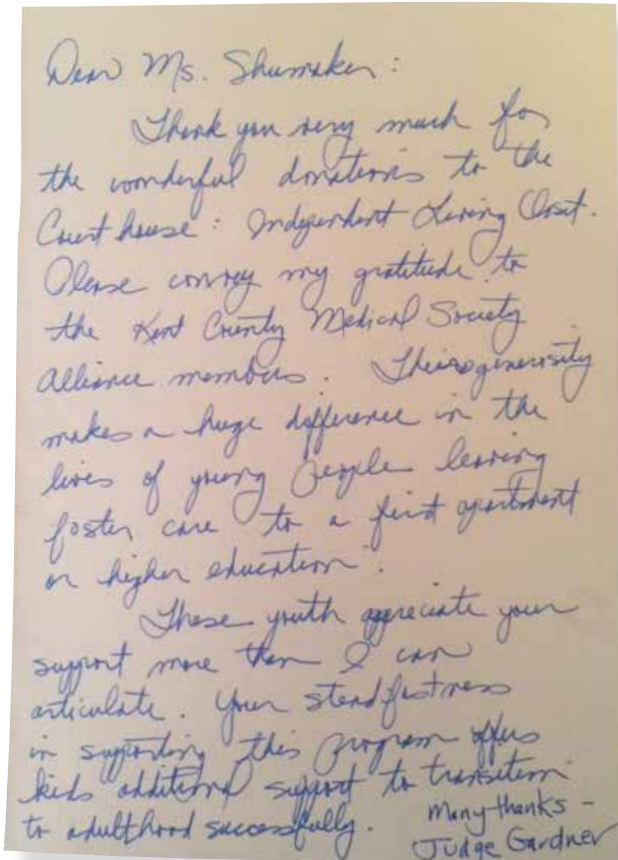 Dear Ms. Shumaker:
Thank you very much for
the wonderful donations to the
Courthouse: Independent Living Closet.
Please convey my gratitude to
the Kent County Medical Society
Alliance members. Their generosity
makes a huge difference in the
lives of young people leaving
foster care to a first apartment
or higher education.
These youth appreciate your
support more than I can
articulate. Your steadfastness
in supporting this program offers
kids additional support to transition
to adulthood successfully.
Many thanks -
Judge Gardner